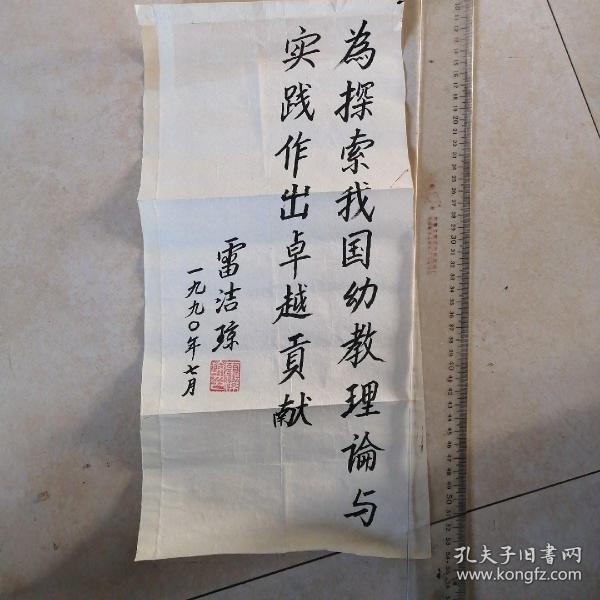 為探索我国幼教理論与
实践作出卓越貢献
雷洁琼
一九九〇年七月
孔夫子旧书网
www.kongfz.com